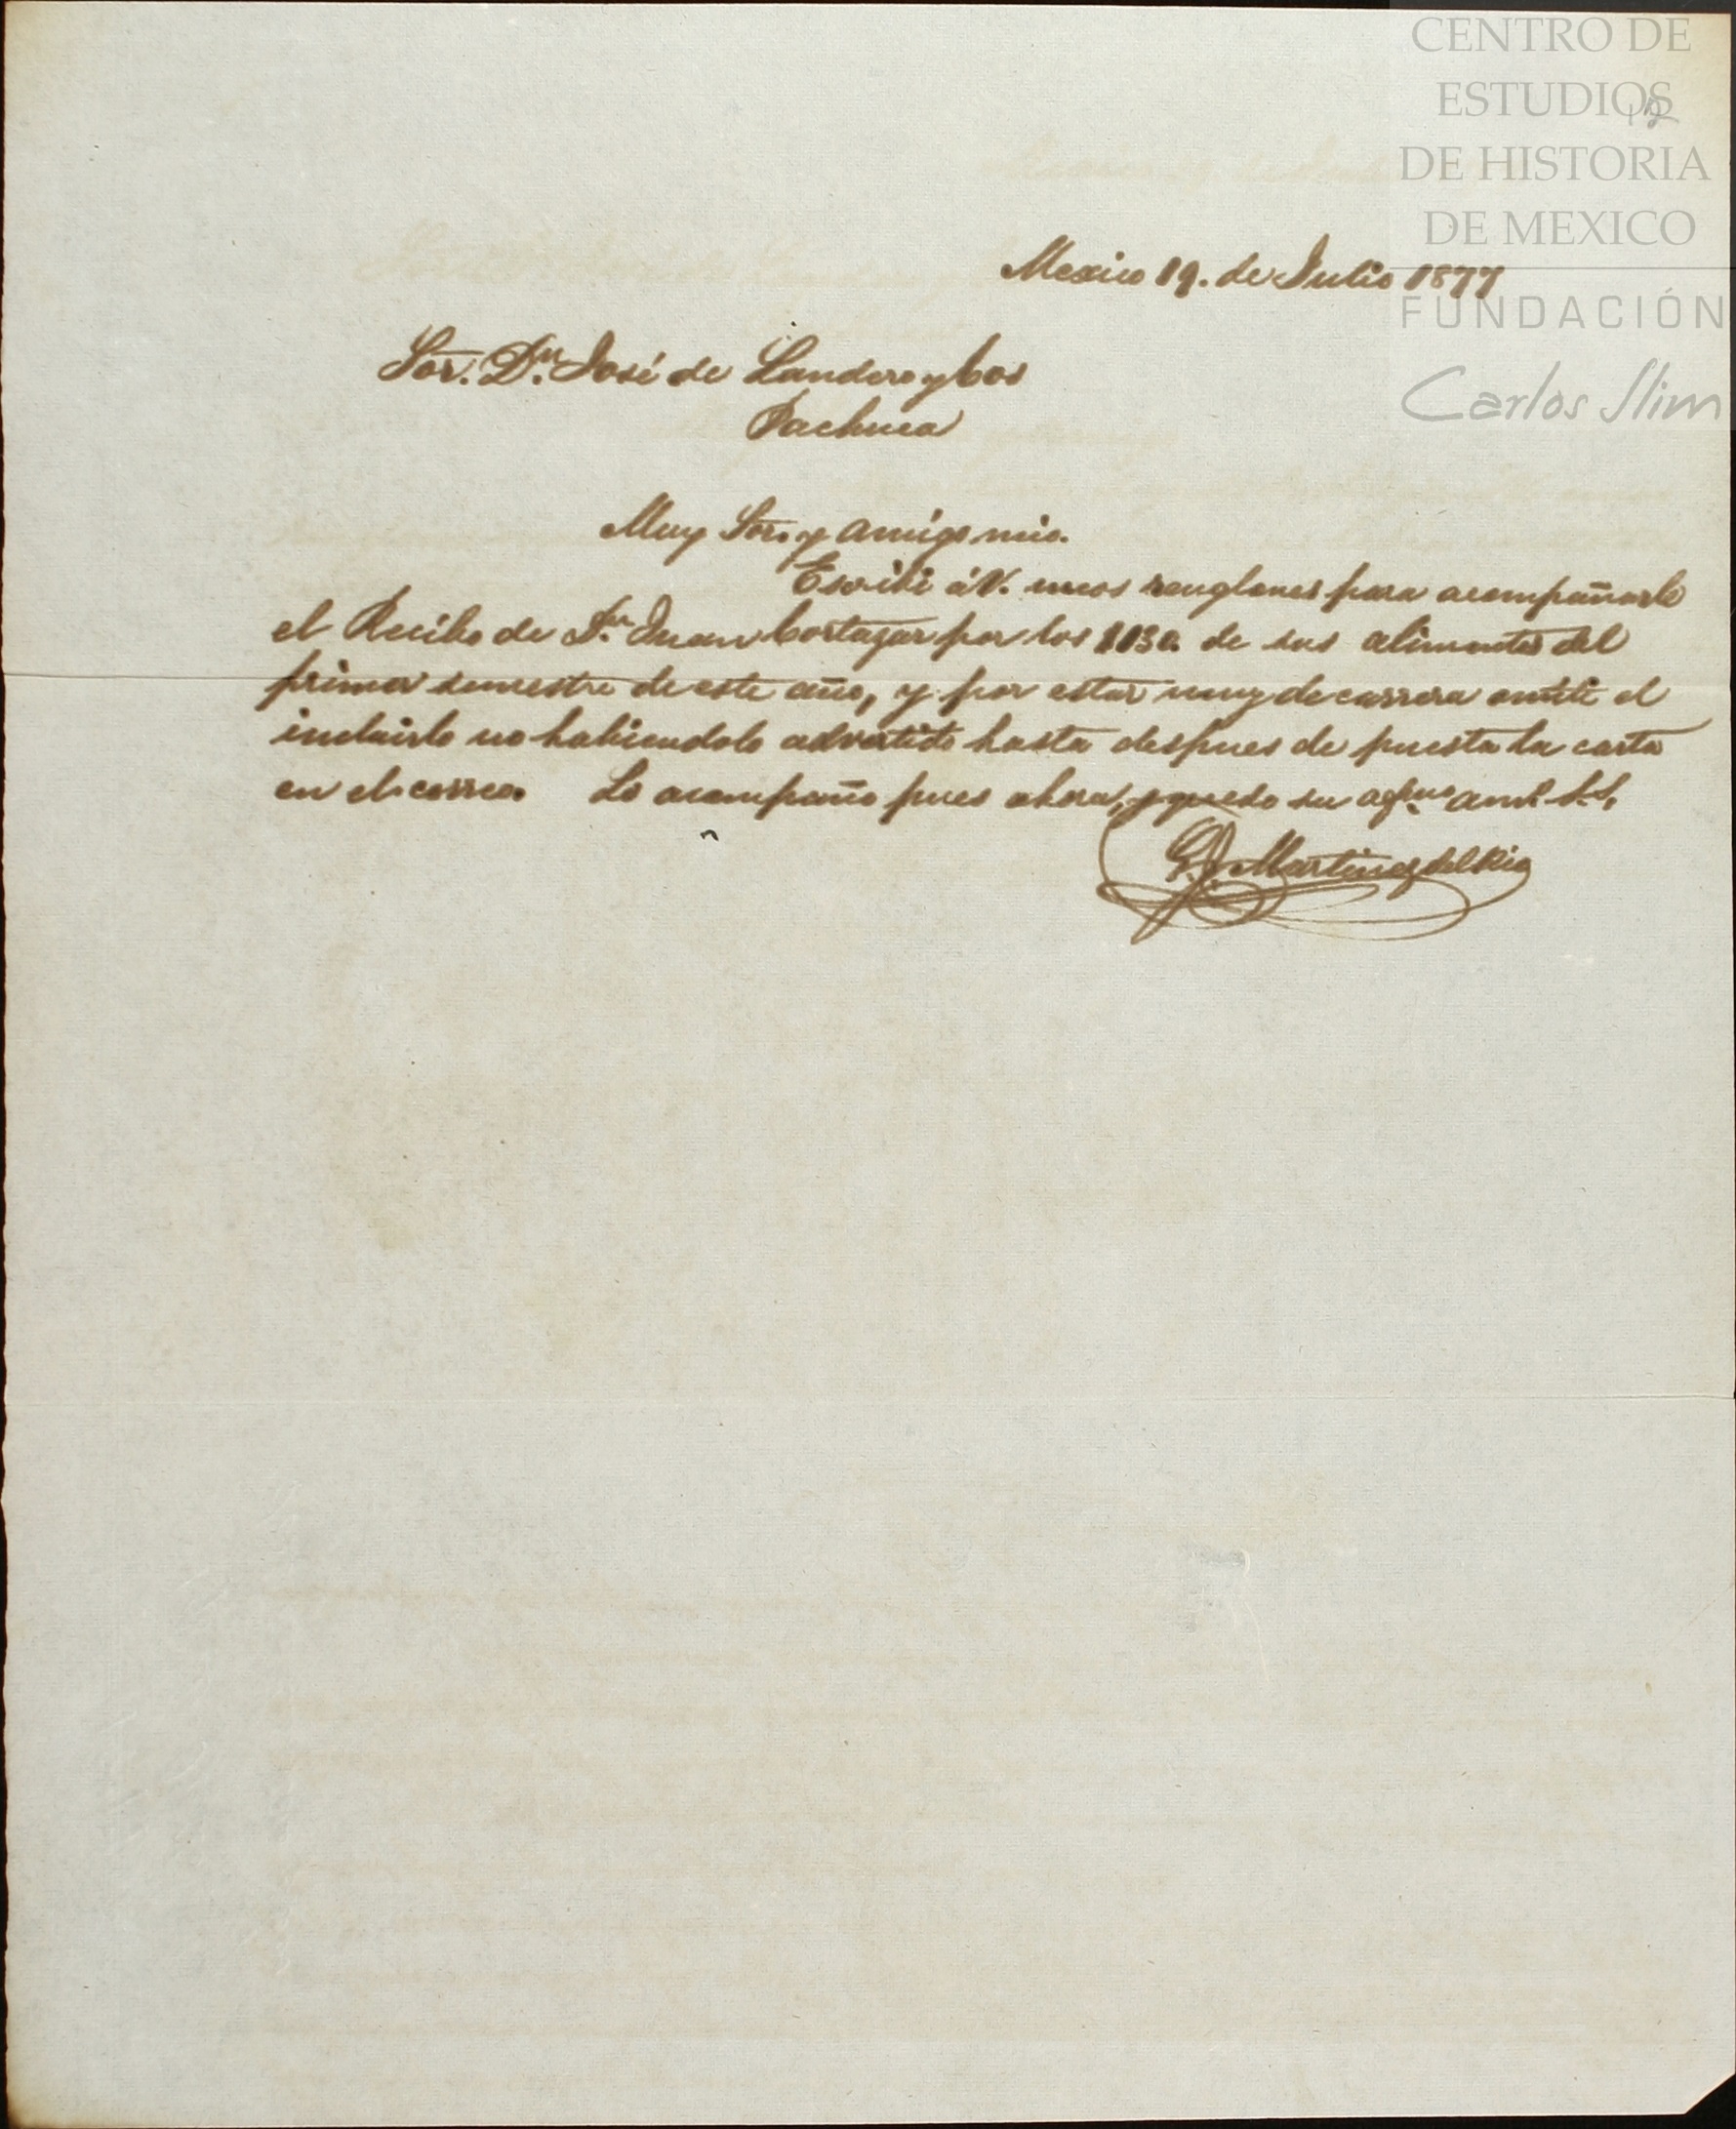 CENTRO DE
ESTUDIOS
DE HISTORIA
DE MEXICO
FUNDACIÓN
Carlos Slim
Mexico 19. de Julio 1877
Sor. Dn. José de Landero y Cos
Pachuca
Muy Sor. y amigo mio.
Escribi á V. unos renglones para acompañarle
el Recibo de Dn. Juan Cortazar por los de sus alimentos del
primer semestre de este año, y por estar muy de carrera omiti el
incluirlo no habiendolo advertido hasta despues de puesta la carta
en el correo. Lo acompaño pues ahora, y quedo su afmo. am.o S.S.
Martinez del Rio